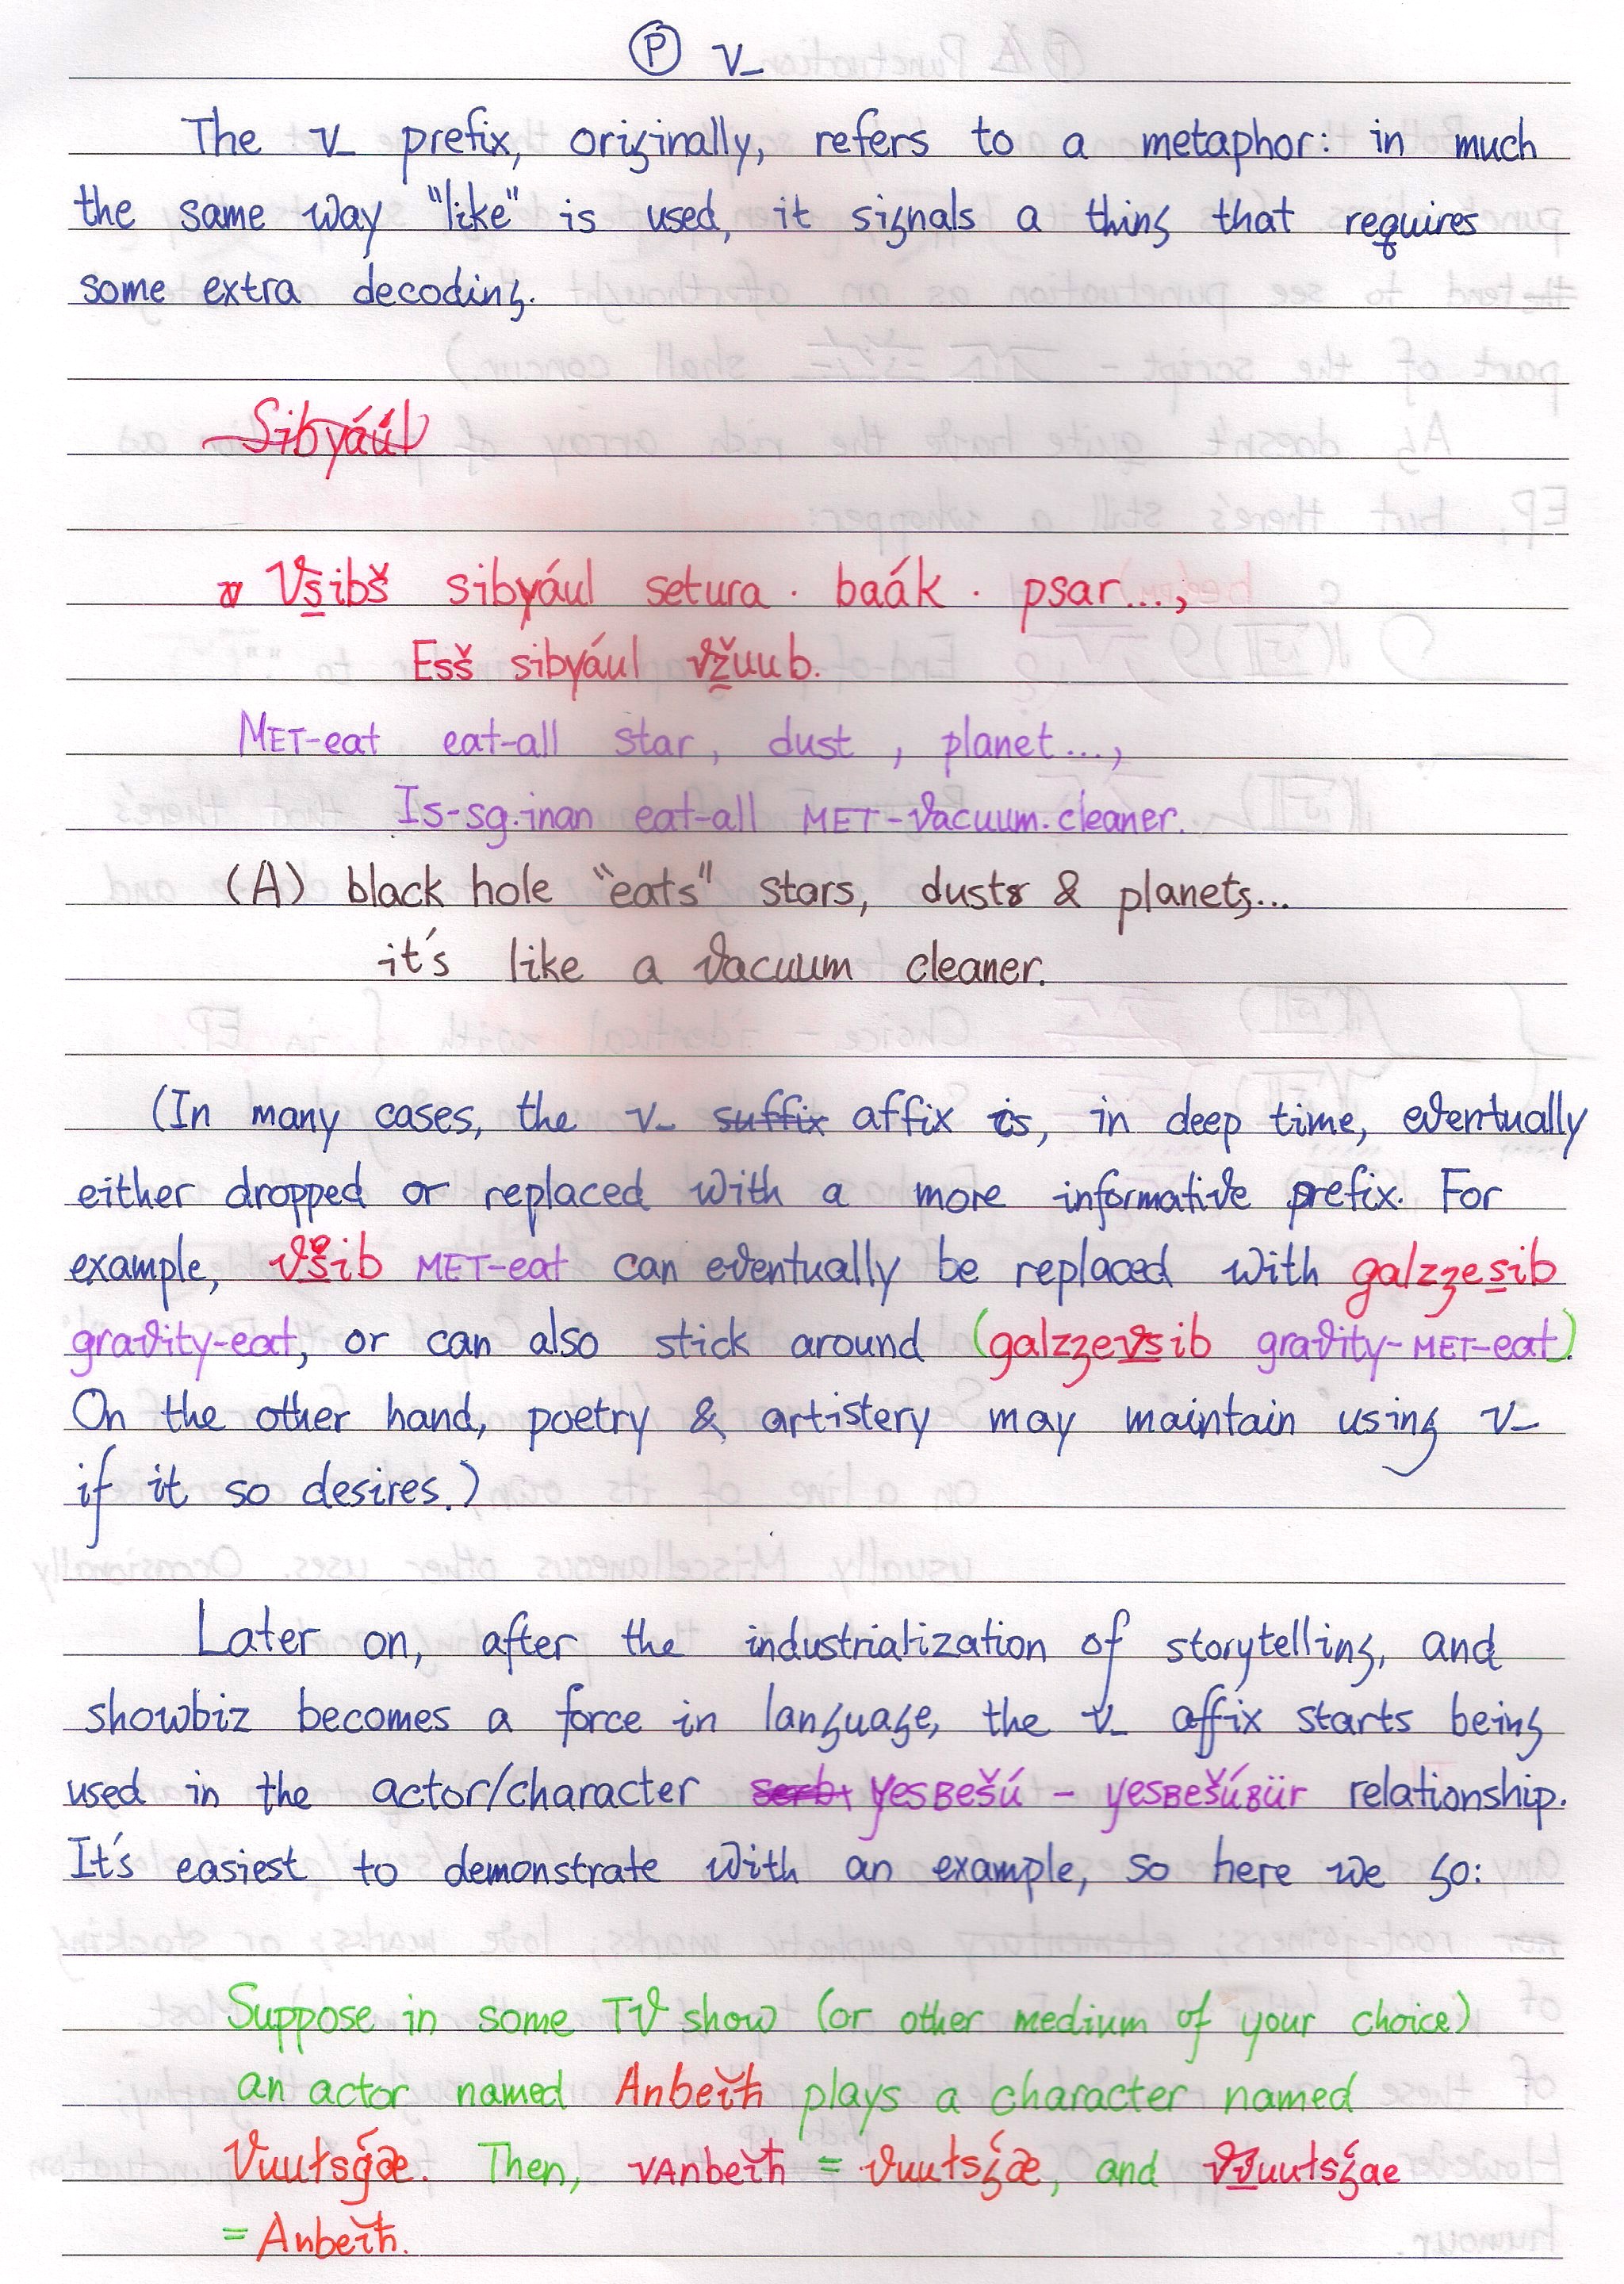 Ⓟ v_
The v_ prefix, originally, refers to a metaphor: in much
the same way "like" is used, it signals a thing that requires
some extra decoding.
Sibyáúl
Vs̲ibš sibyául setura · baák · psar...,
Esš sibyául vž̲uub.
MET-eat eat-all star, dust, planet...,
Is-sg.inan eat-all MET-vacuum.cleaner.
(A) black hole "eats" stars, dusts & planets...
it's like a vacuum cleaner.
(In many cases, the v_ suffix affix is, in deep time, eventually
either dropped or replaced with a more informative prefix. For
example, vs̲ib MET-eat can eventually be replaced with galzʒes̲ib
gravity-eat, or can also stick around (galzʒev̲s̲ib gravity-MET-eat).
On the other hand, poetry & artistery may maintain using v_
if it so desires.)
Later on, after the industrialization of storytelling, and
showbiz becomes a force in language, the v_ affix starts being
used in the actor/character yesʙešú - yesʙešúʙür relationship.
It's easiest to demonstrate with an example, so here we go:
Suppose in some TV show (or other medium of your choice)
an actor named Anbeıťħ plays a character named
Vuutsǵæ. Then, vAnbeıťħ = vuutsǵæ, and vv̲uutsǵae
= Anbeıťħ.